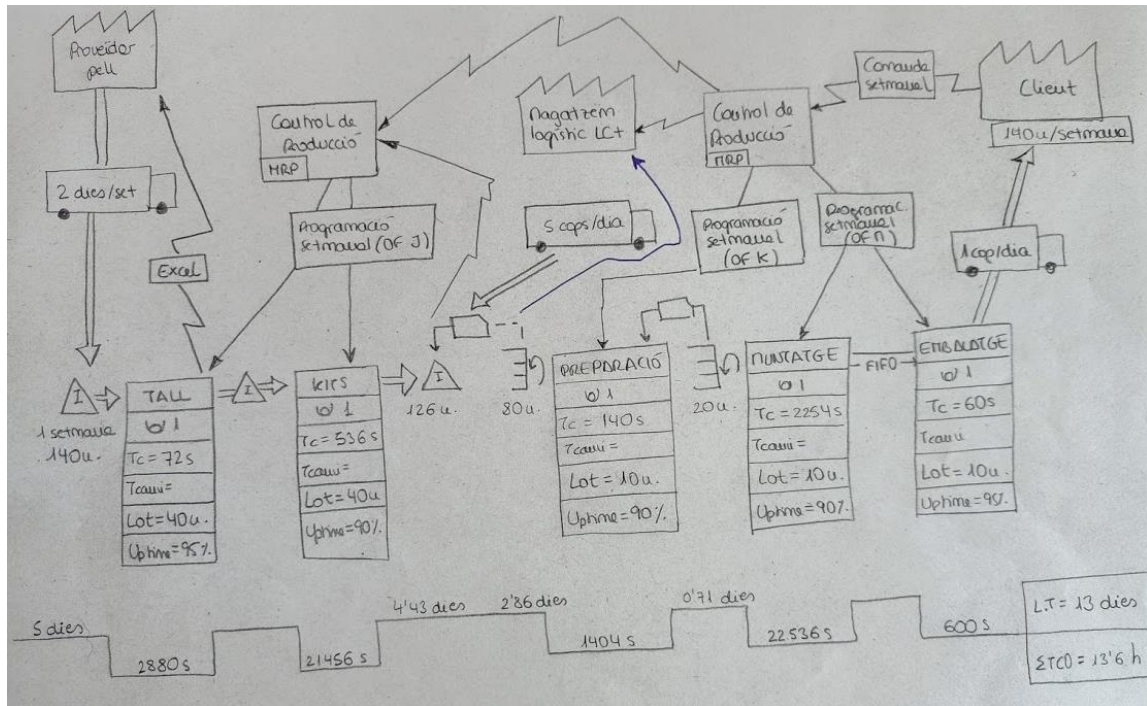 Proveïdor
pell
2 dies/set
Excel
Control de
Producció
MRP
Programació
setmanal (OF J)
Magatzem
logístic LC+
5 cops/dia
Control de
Producció
MRP
Programació
setmanal
(OF K)
Programac.
setmanal
(OF M)
Comanda
setmanal
Client
140u/setmana
1 cop/dia
I
1 setmana
140u.
TALL
1
Tc = 72s
Tcanvi=
Lot=40u.
Uptime=95%
I
KITS
1
Tc = 536s
Tcanvi=
Lot=40u
Uptime=90%
I
126u.
80u.
PREPARACIÓ
1
Tc = 140s
Tcanvi=
Lot=10u.
Uptime=90%
20u.
MUNTATGE
1
Tc = 2254s
Tcanvi=
Lot=10u.
Uptime=90%
FIFO
EMBALATGE
1
Tc=60s
Tcanvi
Lot=10u.
Uptime=95%
5 dies
2880s
21456s
4'43 dies
2'86 dies
1404s
0'71 dies
22.536s
600s
L.T = 13 dies
ΣTCO = 13'6 h